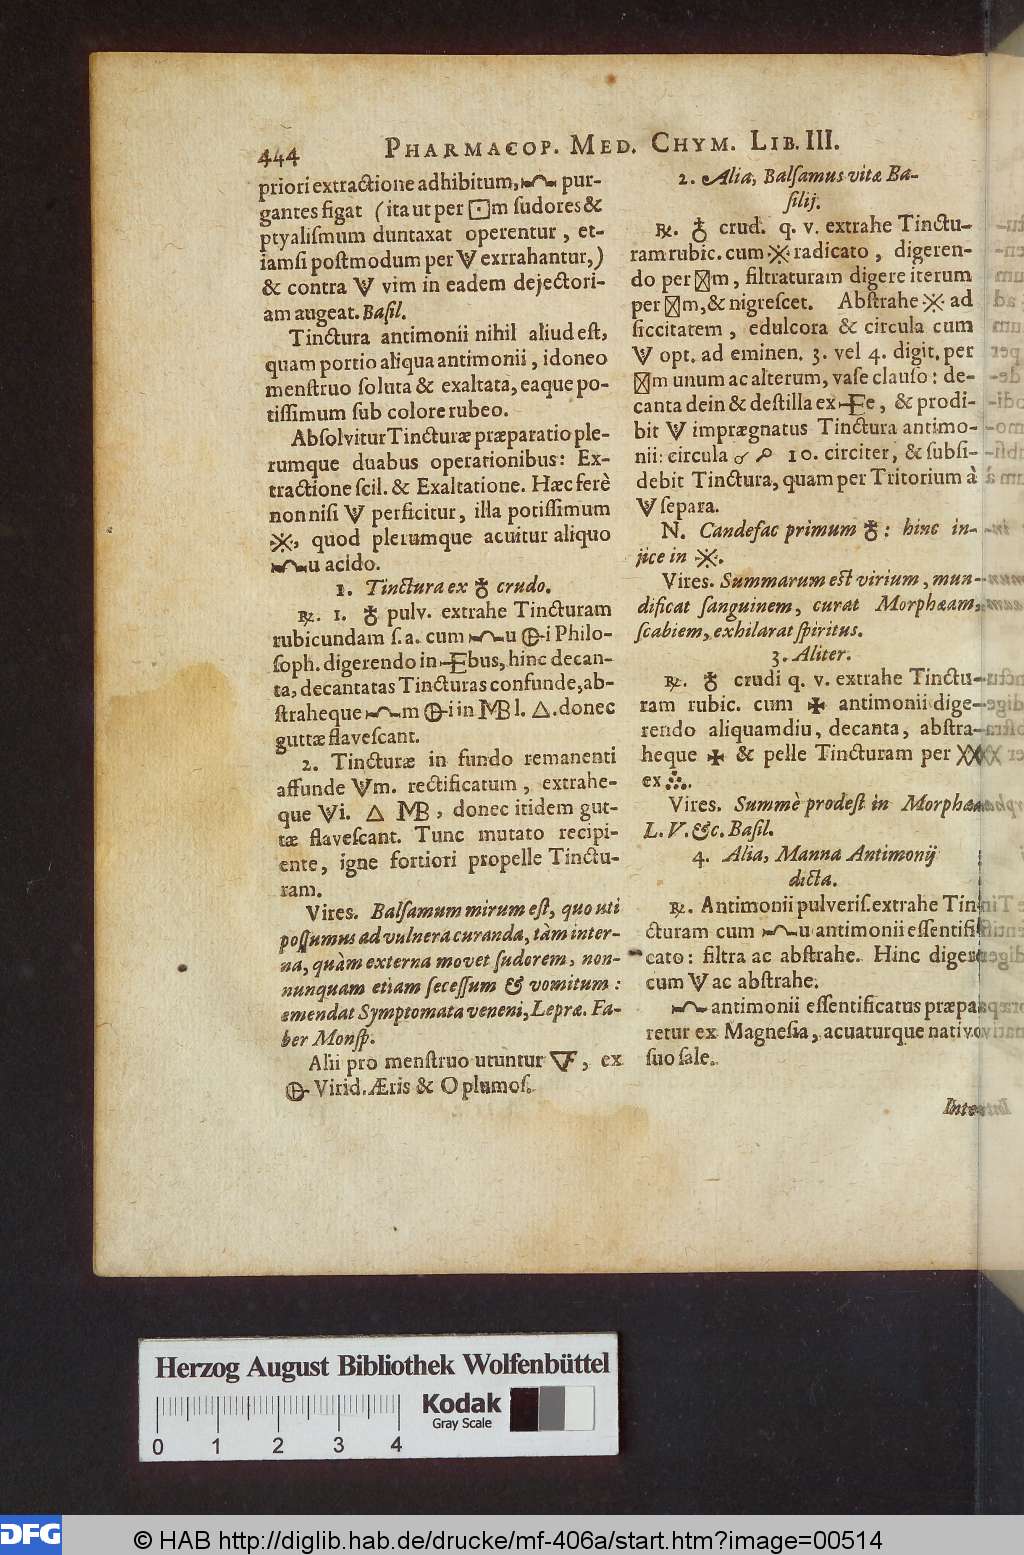 444 PHARMACOP. MED. CHYM. LIB. III.
priori extractione adhibitum, pur-
gantes figat (ita ut per ⊡m ſudores &
ptyaliſmum duntaxat operentur, et-
iamſi poſtmodum per exrrahantur,)
& contra vim in eadem dejectori-
am augeat. Baſil.
Tinctura antimonii nihil aliud eſt,
quam portio aliqua antimonii, idoneo
menſtruo ſoluta & exaltata, eaque po-
tiſſimum ſub colore rubeo.
Abſolvitur Tincturæ præparatio ple-
rumque duabus operationibus: Ex-
tractione ſcil. & Exaltatione. Hæc ferè
non niſi perficitur, illa potiſſimum
※, quod plerumque acuitur aliquo
u acido.
1. Tinctura ex ♁ crudo.
℞. 1. ♁ pulv. extrahe Tincturam
rubicundam ſ. a. cum u i Philo-
ſoph. digerendo in bus, hinc decan-
ta, decantatas Tincturas confunde, ab-
ſtraheque m i in MB l. △. donec
guttæ flaveſcant.
2. Tincturæ in fundo remanenti
affunde m. rectificatum, extrahe-
que i. △ MB, donec itidem gut-
tæ flaveſcant. Tunc mutato recipi-
ente, igne fortiori propelle Tinctu-
ram.
Vires. Balſamum mirum eſt, quo uti
poſſumus ad vulnera curanda, tàm inter-
na, quàm externa movet ſudorem, non-
nunquam etiam ſeceſſum & vomitum:
emendat Symptomata veneni, Lepræ. Fa-
ber Monſp.
Alii pro menſtruo utuntur , ex
Virid. Æris & O plumoſ.
2. Alia, Balſamus vitæ Ba-
ſilij.
℞. ♁ crud. q. v. extrahe Tinctu-
ram rubic. cum ※ radicato, digeren-
do per m, filtraturam digere iterum
per m, & nigreſcet. Abſtrahe ※ ad
ſiccitatem, edulcora & circula cum
opt. ad eminen. 3. vel 4. digit. per
m unum ac alterum, vaſe clauſo: de-
canta dein & deſtilla ex e, & prodi-
bit imprægnatus Tinctura antimo-
nii: circula 10. circiter, & ſubſi-
debit Tinctura, quam per Tritorium à
ſepara.
N. Candefac primum ♁: hinc in-
jice in ※.
Vires. Summarum eſt virium, mun-
dificat ſanguinem, curat Morphæam,
ſcabiem, exhilarat ſpiritus.
3. Aliter.
℞. ♁ crudi q. v. extrahe Tinctu-
ram rubic. cum ✠ antimonii dige-
rendo aliquamdiu, decanta, abſtra-
heque ✠ & pelle Tincturam per XXX
ex .
Vires. Summè prodeſt in Morphæa
L. V. &c. Baſil.
4. Alia, Manna Antimonij
dicta.
℞. Antimonii pulveriſ. extrahe Tin-
cturam cum u antimonii eſſentifi-
cato: filtra ac abſtrahe. Hinc digere
cum ac abſtrahe.
antimonii eſſentificatus præpa-
retur ex Magneſia, acuaturque nativo
ſuo ſale.
Herzog August Bibliothek Wolfenbüttel
Kodak
Gray Scale
0 1 2 3 4
DFG
© HAB http://diglib.hab.de/drucke/mf-406a/start.htm?image=00514